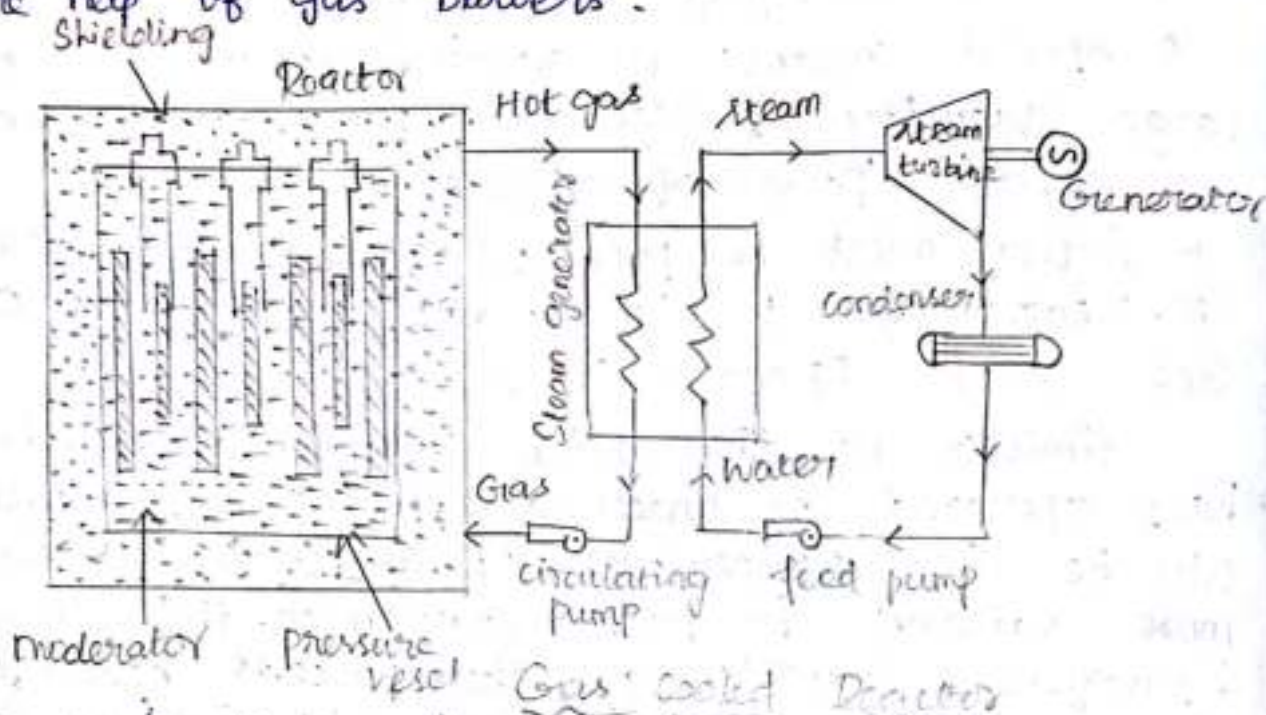 help of gas blowers.
Shielding
Reactor
Hot gas
steam
steam
turbine
S
Generator
Steam generator
condenser
Gas
water
circulating
pump
feed pump
moderator
pressure
vesel
Gas cooled Reactor